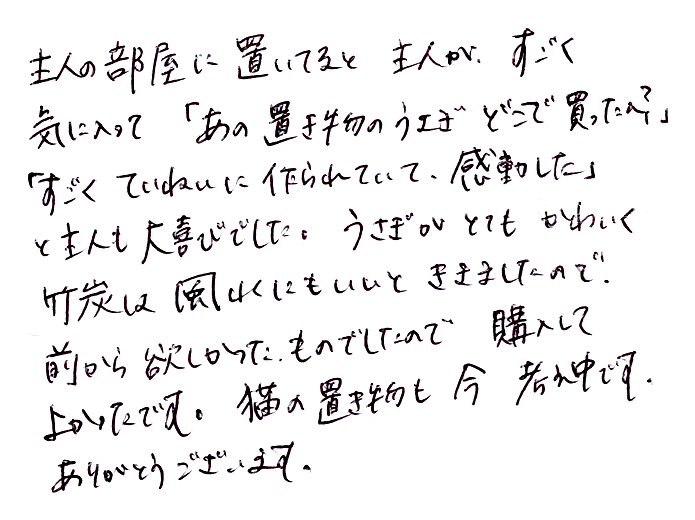 主人の部屋に置いてると 主人が、すごく
気に入って「あの置き物のうさぎ どこで買ったの?」
「すごく ていねいに 作られていて、感動した」
と主人も大喜びでした。うさぎが とても かわいく
竹炭は 風水にもいいと ききましたので、
前から 欲しかった、ものでしたので 購入して
よかったです。猫の置き物も 今 考え中です。
ありがとうございます。